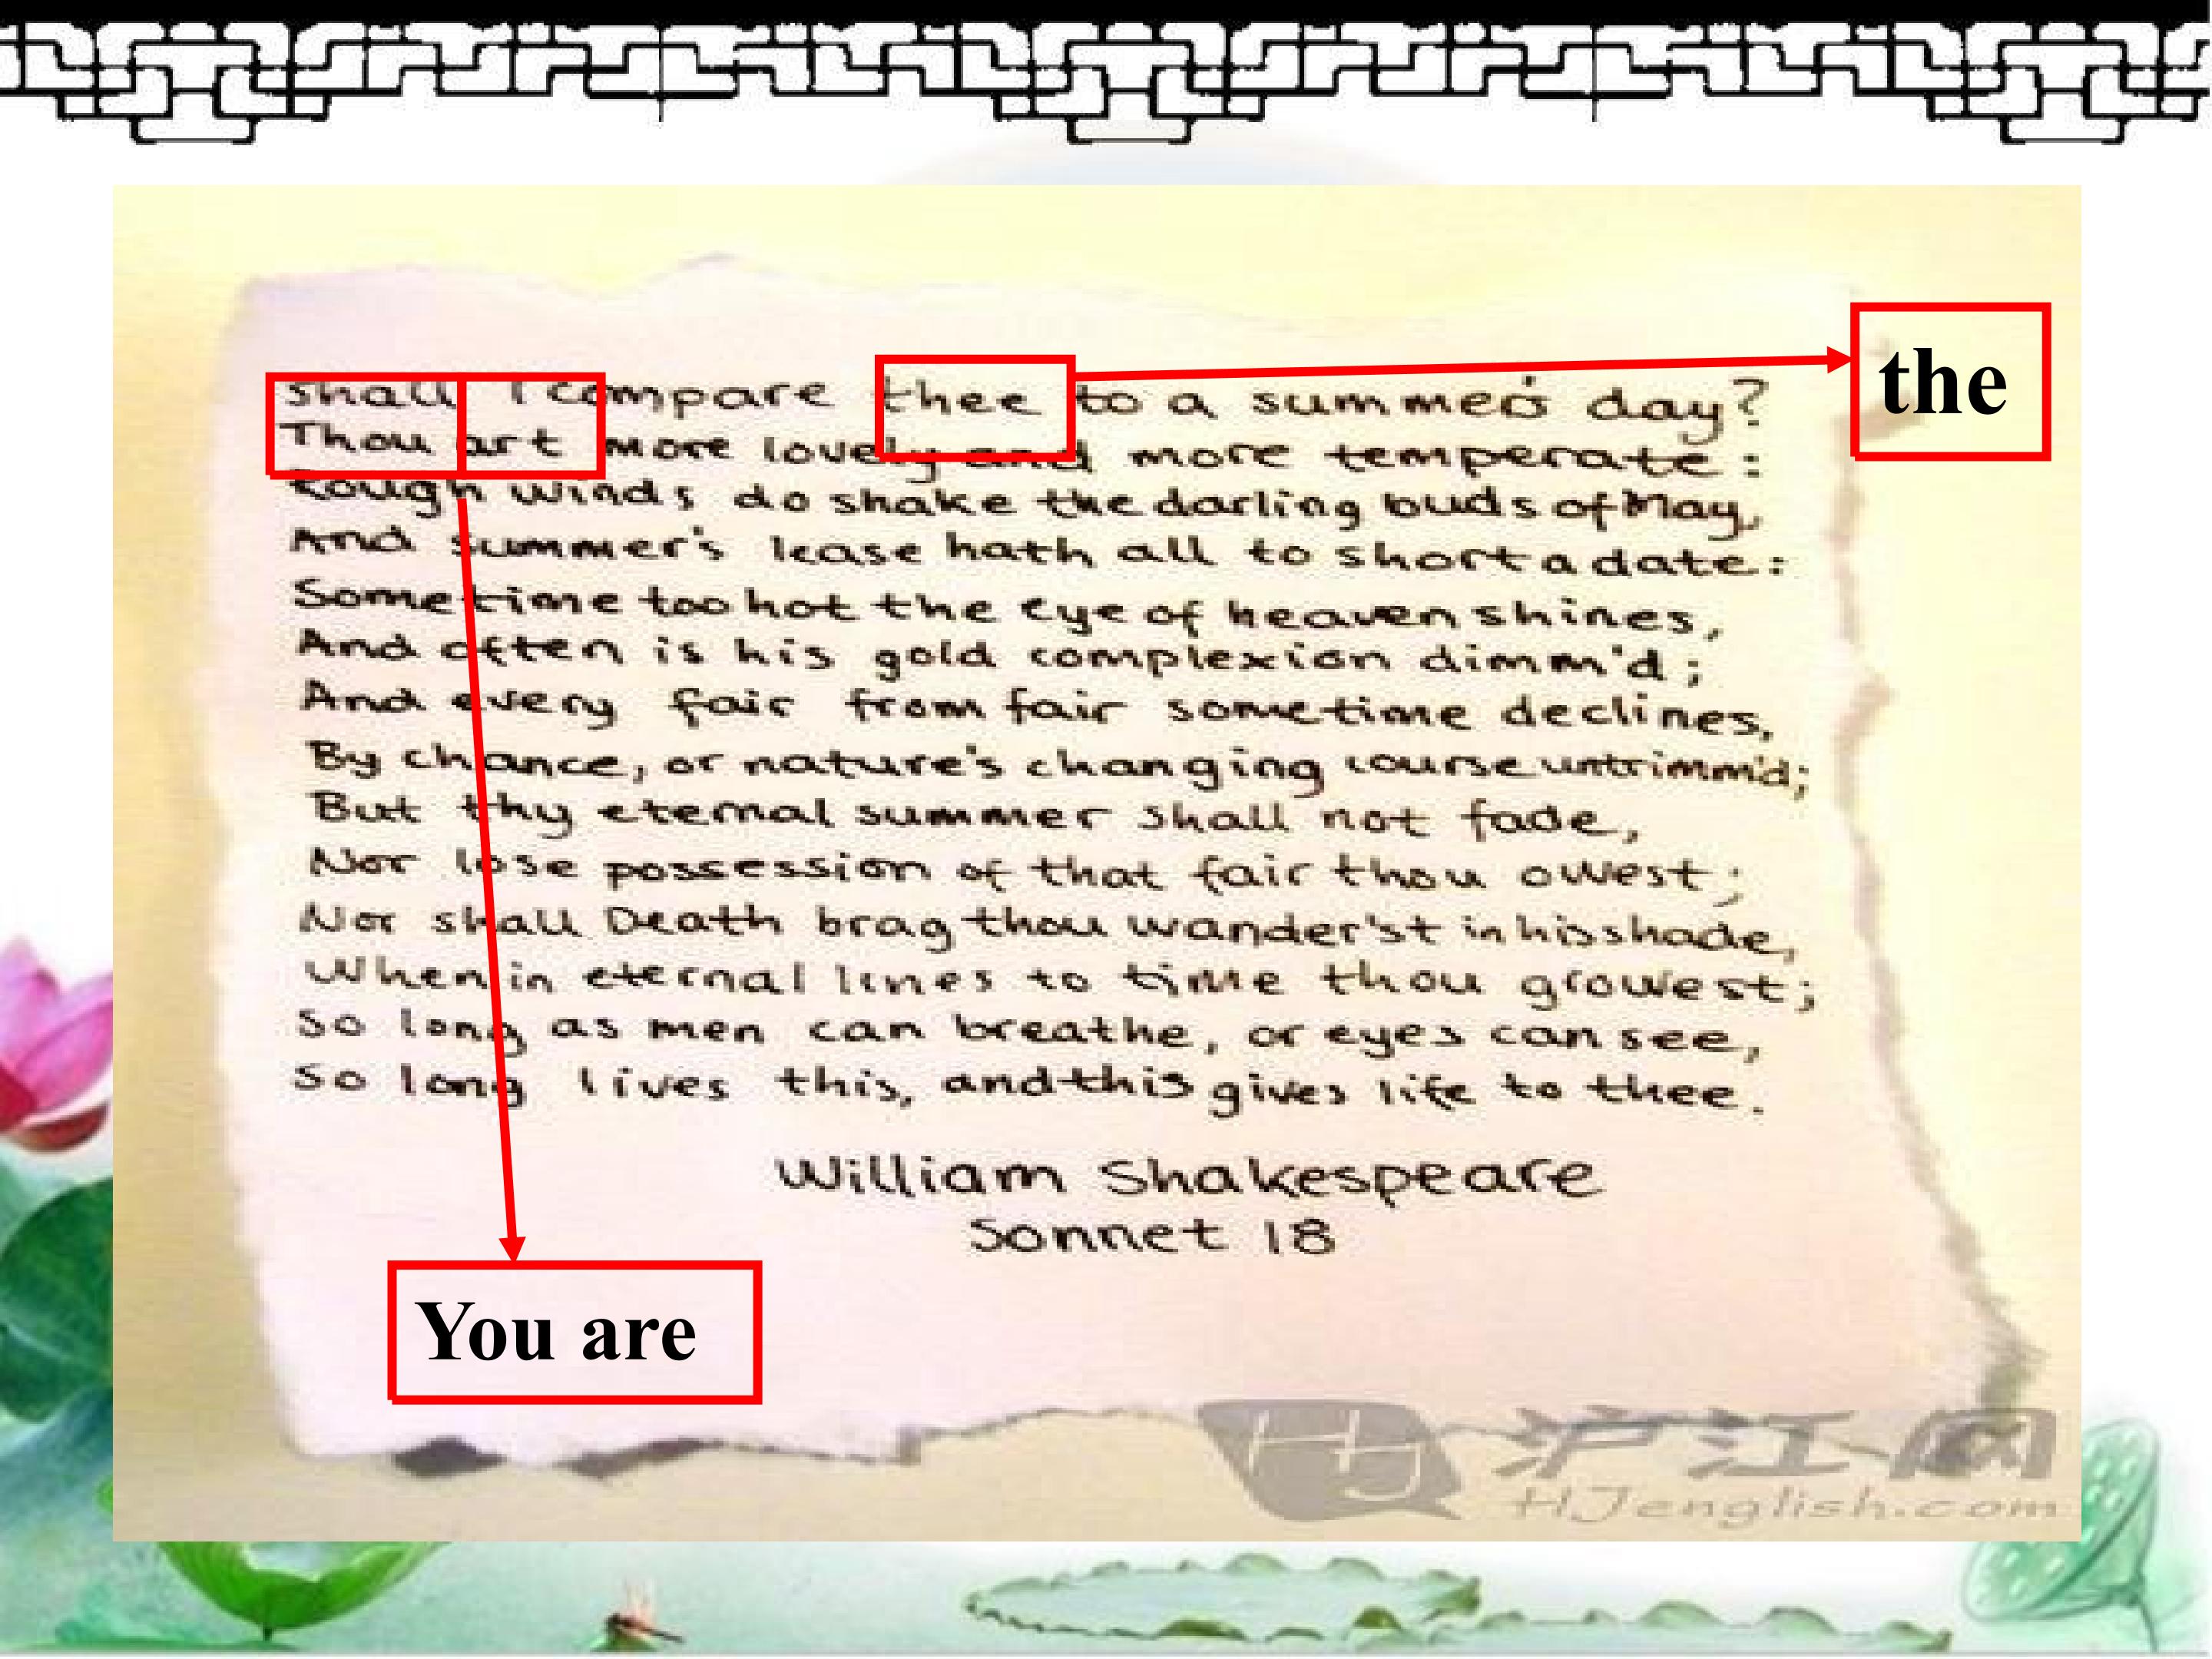 the
shall I compare thee to a summer's day?
Thou art more lovely and more temperate:
Rough winds do shake the darling buds of May,
And summer's lease hath all to short a date:
Sometime too hot the eye of heaven shines,
And often is his gold complexion dimm'd;
And every fair from fair sometime declines,
By chance, or nature's changing course untrimm'd;
But thy eternal summer shall not fade,
Nor lose possession of that fair thou owest;
Nor shall Death brag thou wander'st in his shade,
When in eternal lines to time thou growest;
So long as men can breathe, or eyes can see,
So long lives this, and this gives life to thee.
William Shakespeare
Sonnet 18
You are
HJ 沪江网
HJenglish.com